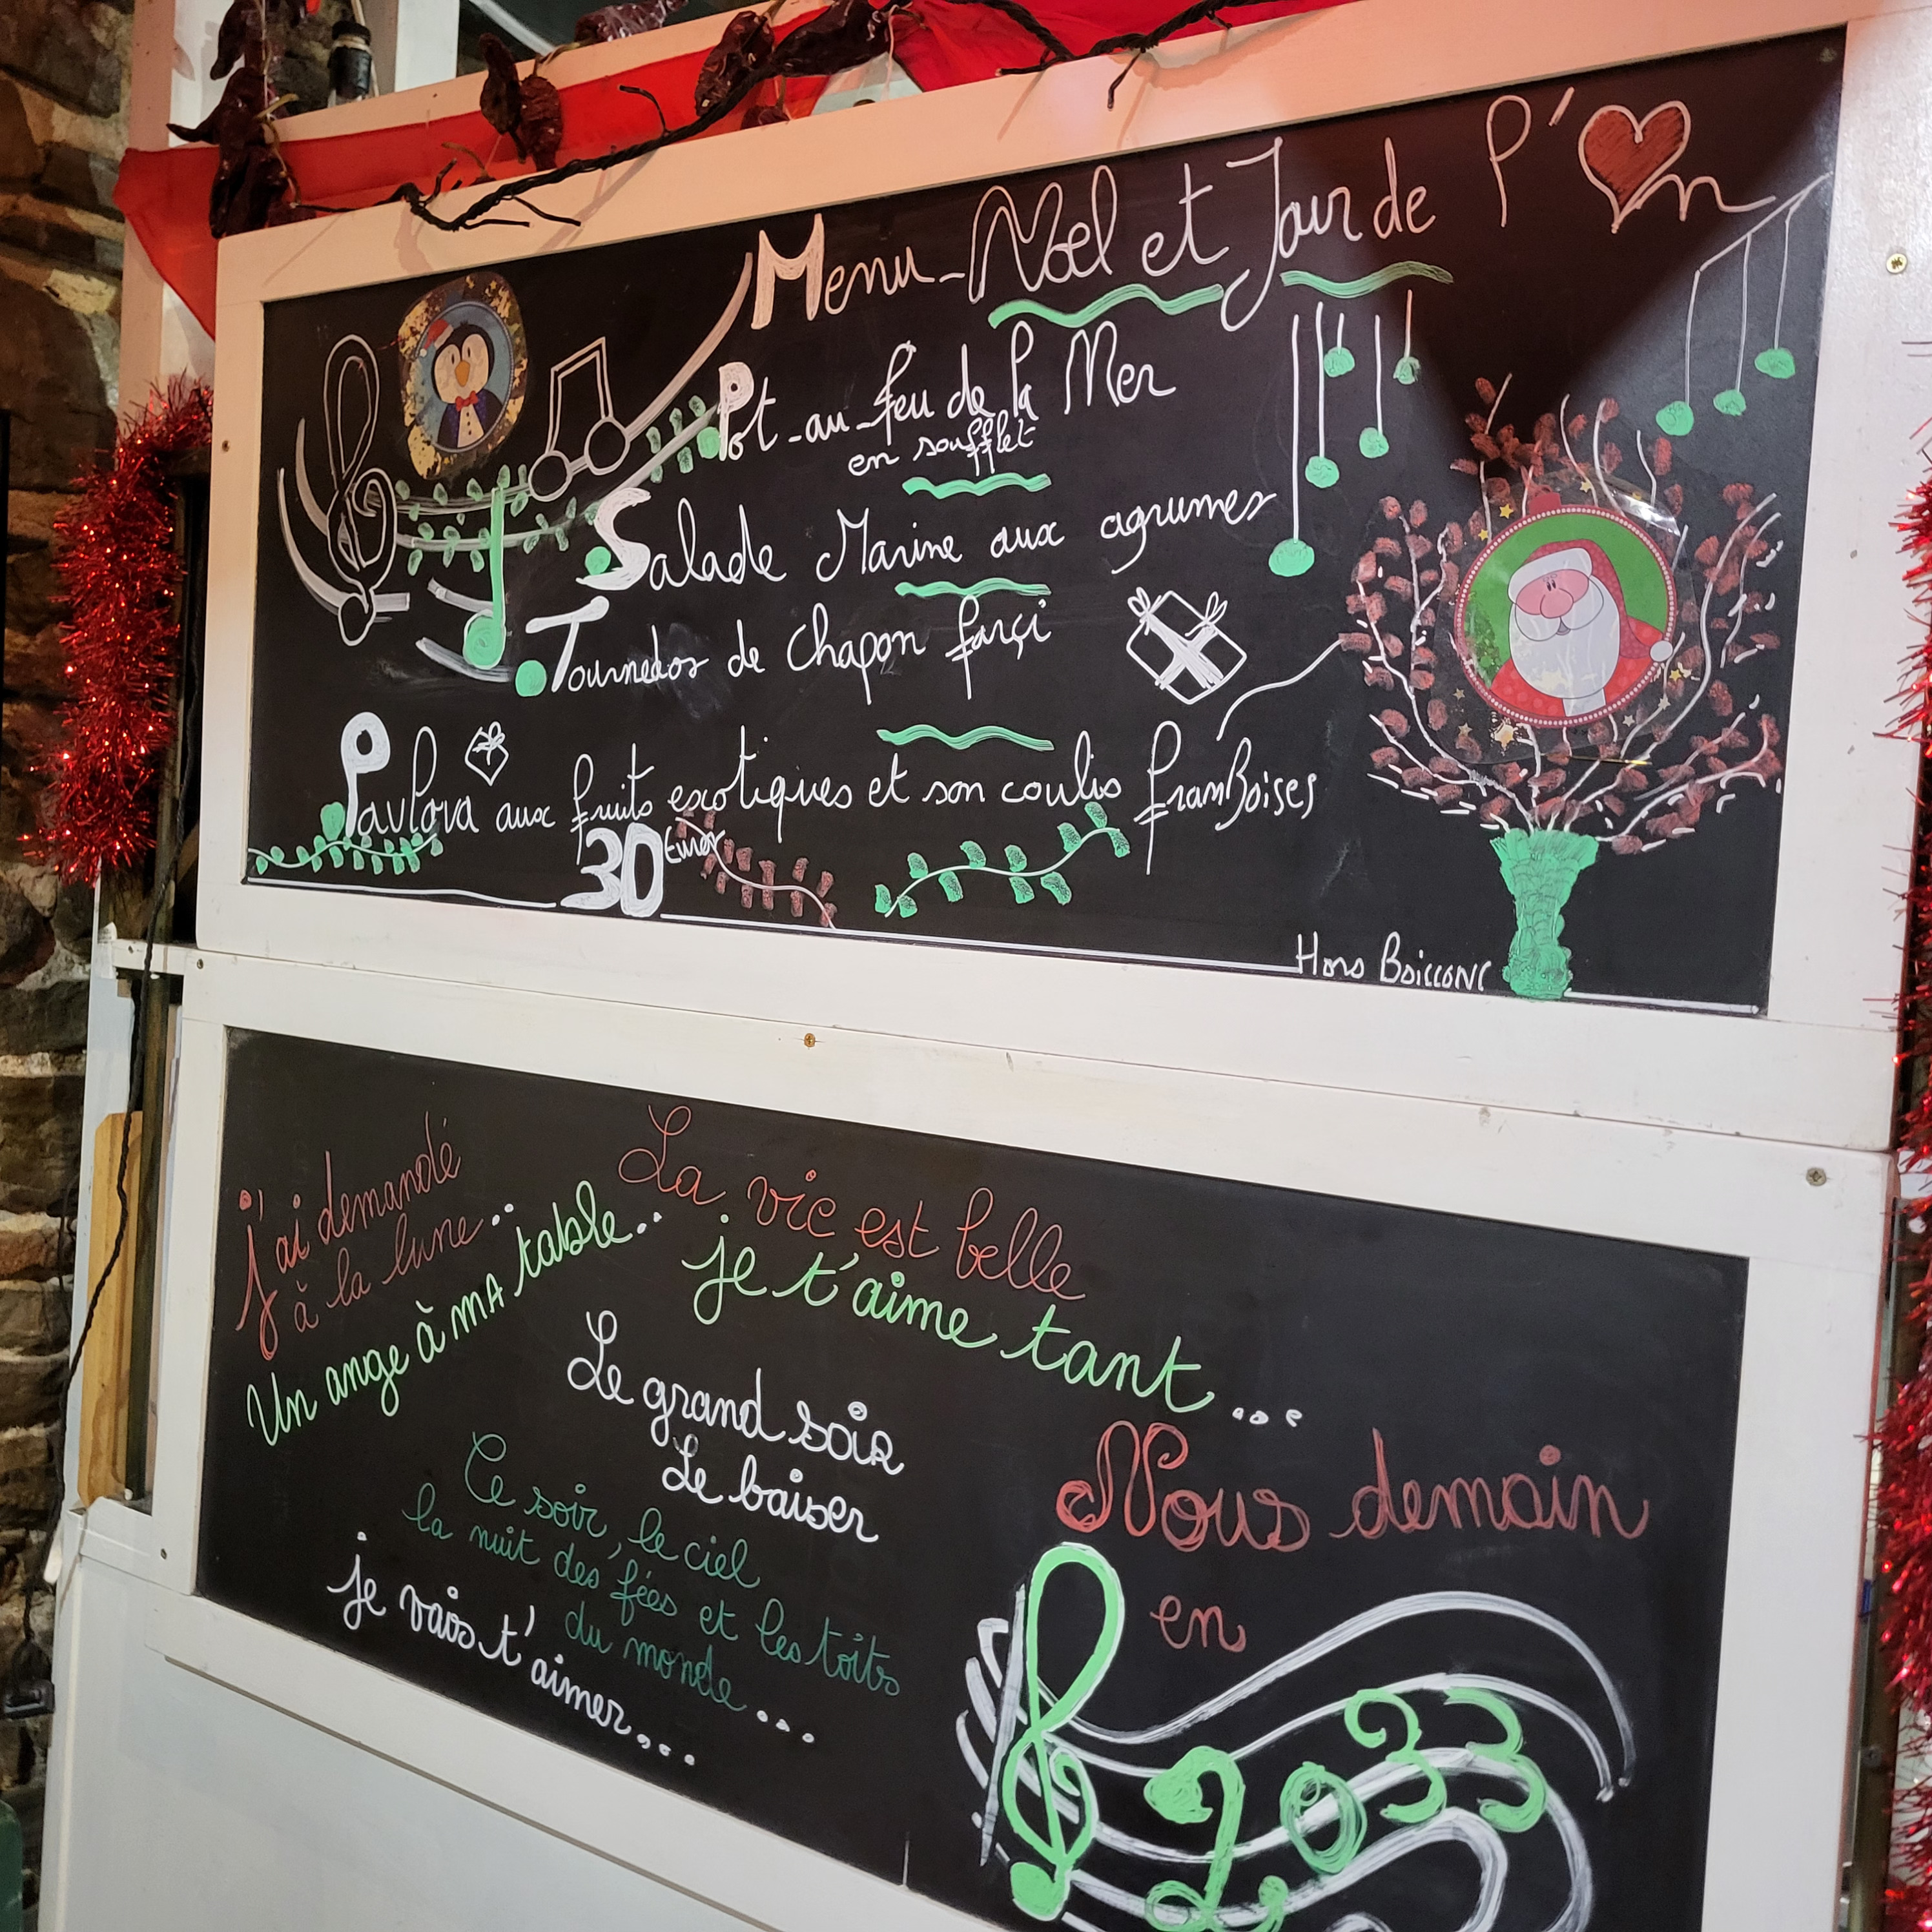 Menu - Noël et Jour de l'An
Pot-au-feu de la Mer
en soufflet
Salade Marine aux agrumes
Tournedos de Chapon farçi
Pavlova aux fruits exotiques et son coulis framBoises
30 euros
Hors Boissons
j'ai demandé
à la lune..
Un ange à mA table...
La vie est belle
je t'aime tant...
Le grand soir
Le baiser
Ce soir, le ciel
la nuit des fées et les toits
du monde...
je vais t'aimer...
Nous demain
en
2033